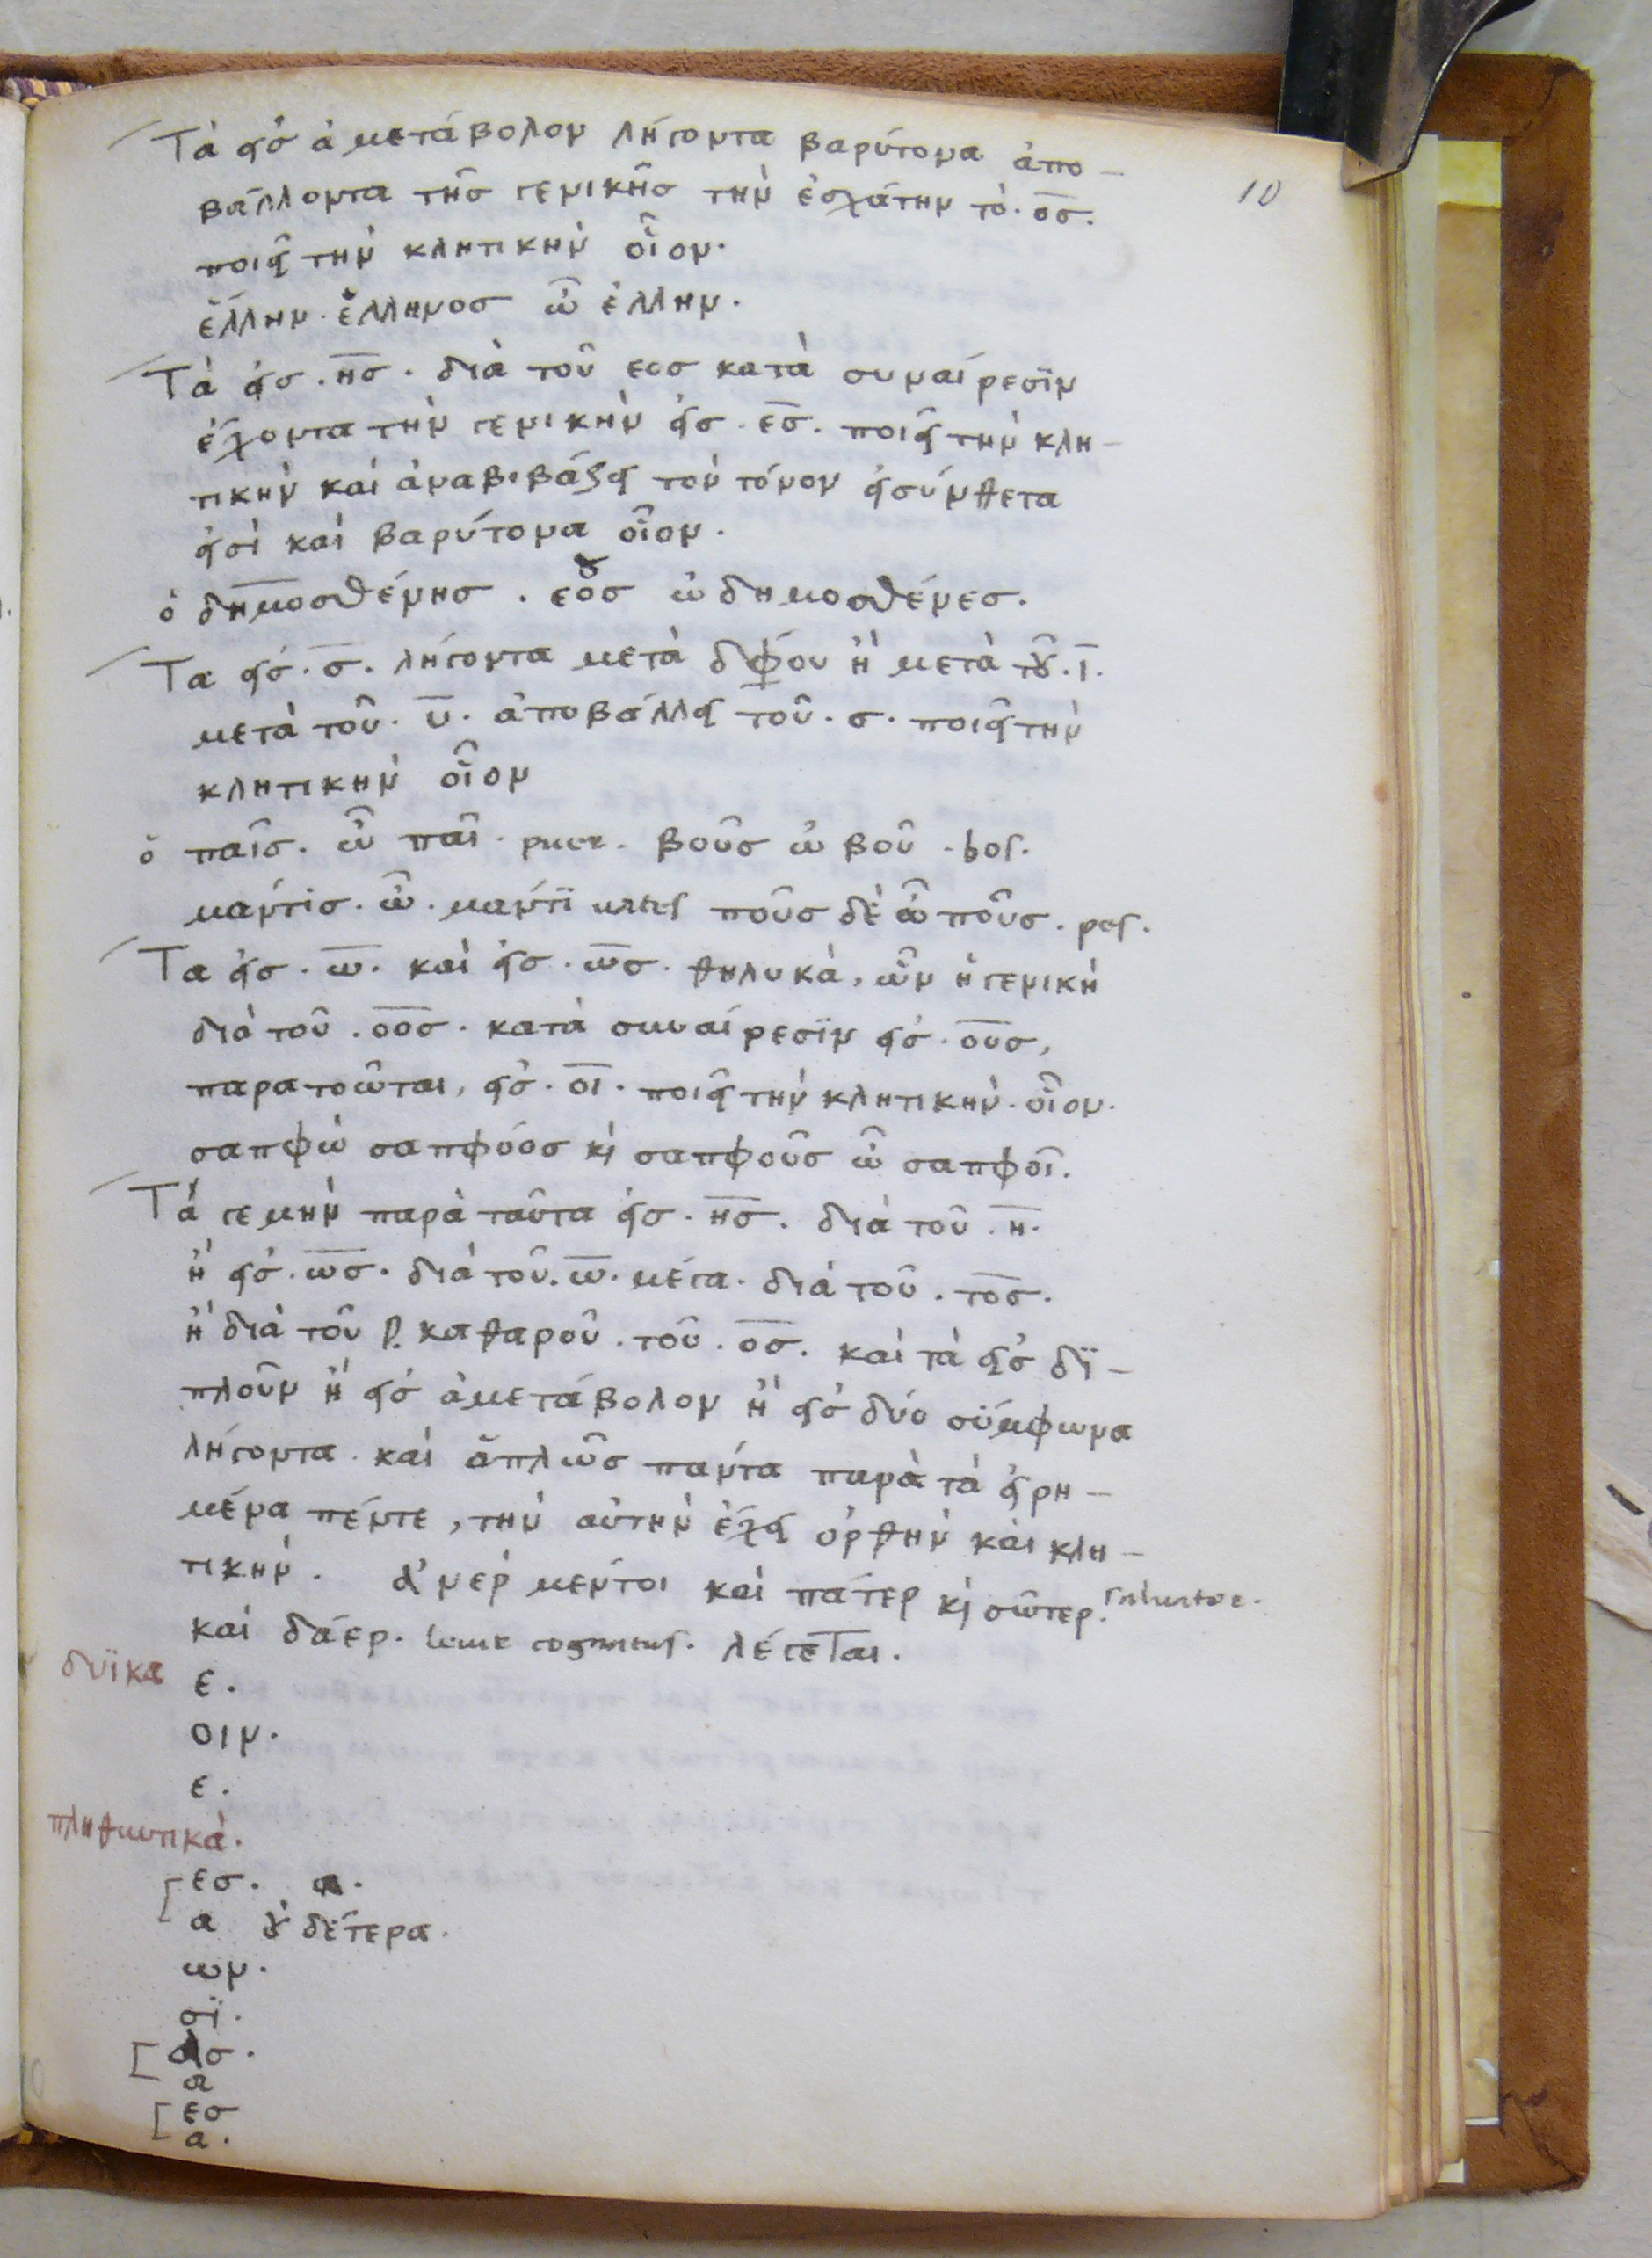 Τὰ εἰσ ἀμετάβολον λήγοντα βαρύτονα ἀπο-
10
βάλλοντα τῆσ γενικῆσ τὴν ἐσχάτην τὸ. οσ.
ποιεῖ τὴν κλητικὴν οἷον.
ἕλλην. ἕλληνοσ ὦ ἕλλην.
Τὰ εἰσ. ησ. διὰ τοῦ εοσ κατὰ συναίρεσϊν
ἔχοντα τὴν γενικὴν εἰσ. εσ. ποιεῖ τὴν κλη-
τικὴν καὶ ἀναβιβάζει τὸν τόνον εἰ σύνθετα
εἰσὶ καὶ βαρύτονα οἷον.
ὁ δημοσθένησ. εοσ ὦ δημοσθένεσ.
Τα εἰσ. σ. λήγοντα μετὰ διφθόγγου ἢ μετὰ τοῦ. ι.
μετὰ τοῦ. υ. ἀποβάλλει τοῦ. σ. ποιεῖ τὴν
κλητικὴν οἷον
ὁ παῖσ. ὦ παῖ. puer. βοῦσ ὦ βοῦ. bos.
μαντισ. ὦ. μαντϊ uates ποῦσ δὲ ὦ ποῦσ. pes.
Τα εἰσ. ω. καὶ εἰσ. ωσ. θηλυκὰ, ὧν ἡ γενικὴ
διὰ τοῦ. οοσ. κατὰ συναίρεσϊν εἰσ. ουσ,
παρατοῶται, εἰσ. οι. ποιεῖ τὴν κλητικὴν. οἷον.
σαπφὼ σαπφόοσ κὶ σαπφοῦσ ὦ σαπφοῖ.
Τά γε μὴν παρὰ ταῦτα εἰσ. ησ. διὰ τοῦ. η.
ἢ εἰσ. ωσ. διὰ τοῦ. ω. μέγα. διὰ τοῦ. τοσ.
ἢ διὰ τοῦ ρ. καθαροῦ. τοῦ. οσ. καὶ τὰ εἰσ δϊ-
πλοῦν ἢ εἰσ ἀμετάβολον ἢ εἰσ δύο σύμφωνα
λήγοντα. καὶ ἁπλῶσ παντα παρὰ τὰ εἰρη-
μένα πέντε, τὴν αὐτὴν ἔχει ὀρθὴν καὶ κλη-
τικήν. ἄνερ μεντοι καὶ πάτερ κὶ σῶτερ. saluator.
καὶ δᾶερ. leuir cognatus. λέγεται.
δυϊκα
ε.
οιν.
ε.
πληθυντικὰ.
εσ. α.
α οὐδέτερα.
ων.
σϊ.
ασ.
α
εσ
α.